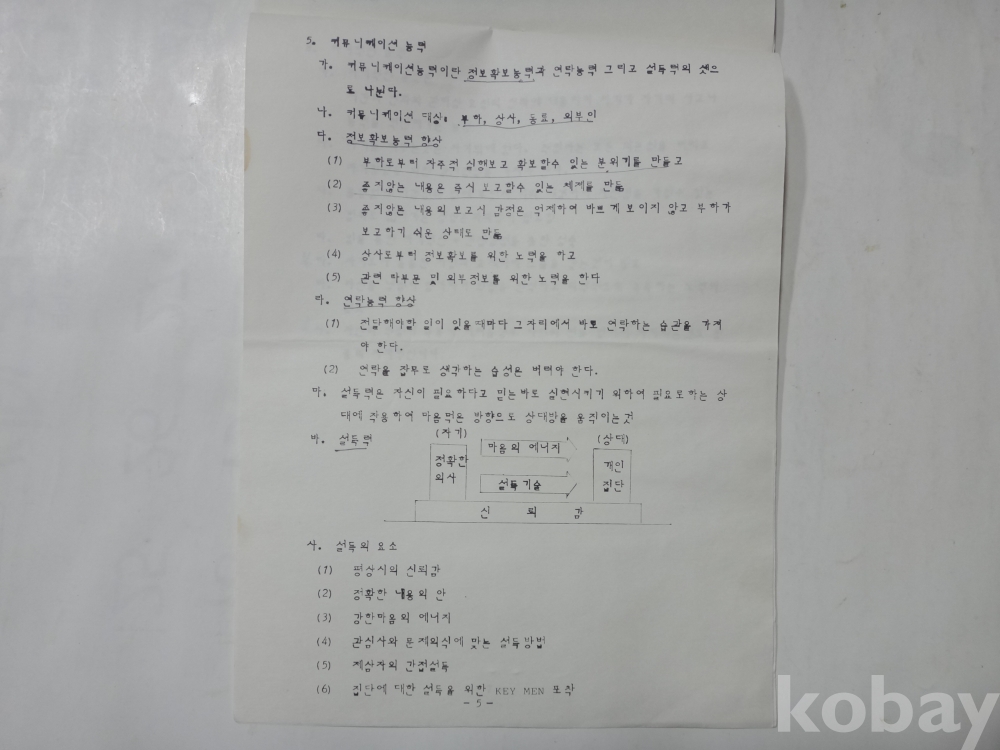 5. 커뮤니케이션 능력
가. 커뮤니케이션능력이란 정보확보능력과 연락능력 그리고 설득력의 셋으
로 나뉜다.
나. 커뮤니케이션 대상: 부하, 상사, 동료, 외부인
다. 정보확보능력 향상
(1) 부하로부터 자주적 실행보고 확보할수 있는 분위기를 만들고
(2) 좋지않는 내용은 즉시 보고할수 있는 체제를 만듬
(3) 좋지않은 내용의 보고시 감정은 억제하여 바르게 보이지 않고 부하가
보고하기 쉬운 상태로 만듬
(4) 상사로부터 정보확보를 위한 노력을 하고
(5) 관련 타부문 및 외부정보를 위한 노력을 한다
라. 연락능력 향상
(1) 전달해야할 일이 있을때마다 그자리에서 바로 연락하는 습관을 가져
야 한다.
(2) 연락을 잡무로 생각하는 습성은 버려야 한다.
마. 설득력은 자신이 필요하다고 믿는바로 실현시키기 위하여 필요로하는 상
대에 작용하여 마음먹은 방향으로 상대방을 움직이는것
바. 설득력
(자기) (상대)
마음의 에너지
정확한
의사
개인
집단
설득기술
신 뢰 감
사. 설득의 요소
(1) 평상시의 신뢰감
(2) 정확한 내용의 안
(3) 강한마음의 에너지
(4) 관심사와 문제의식에 맞는 설득방법
(5) 제삼자의 간접설득
(6) 집단에 대한 설득을 위한 KEY MEN 포착
- 5 -
kobay